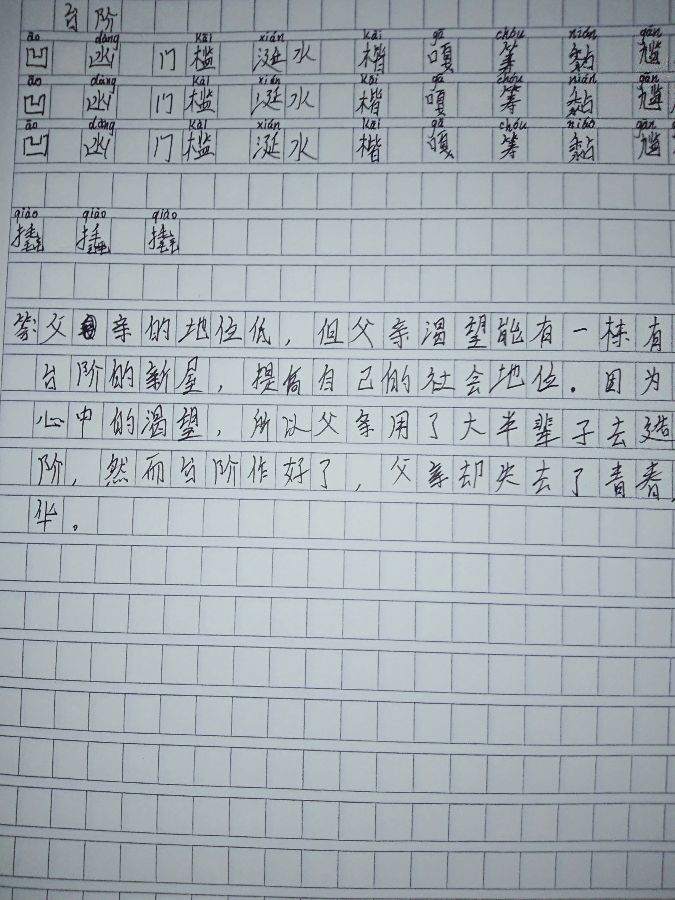 台阶
āo dàng kǎi xián kāi gā chóu nián gān
凹 凼 门槛 涎水 揩 嘎 筹 黏 尴
āo dàng kǎi xián kāi gā chóu nián gān
凹 凼 门槛 涎水 揩 嘎 筹 黏 尴
āo dàng kǎi xián kāi gā chóu nián gān
凹 凼 门槛 涎水 揩 嘎 筹 黏 尴
qiào qiào qiào
父亲的地位低,但父亲渴望能有一栋有
台阶的新屋,提高自己的社会地位。因为
心中的渴望,所以父亲用了大半辈子去造
阶,然而台阶作好了,父亲却失去了青春,
华。